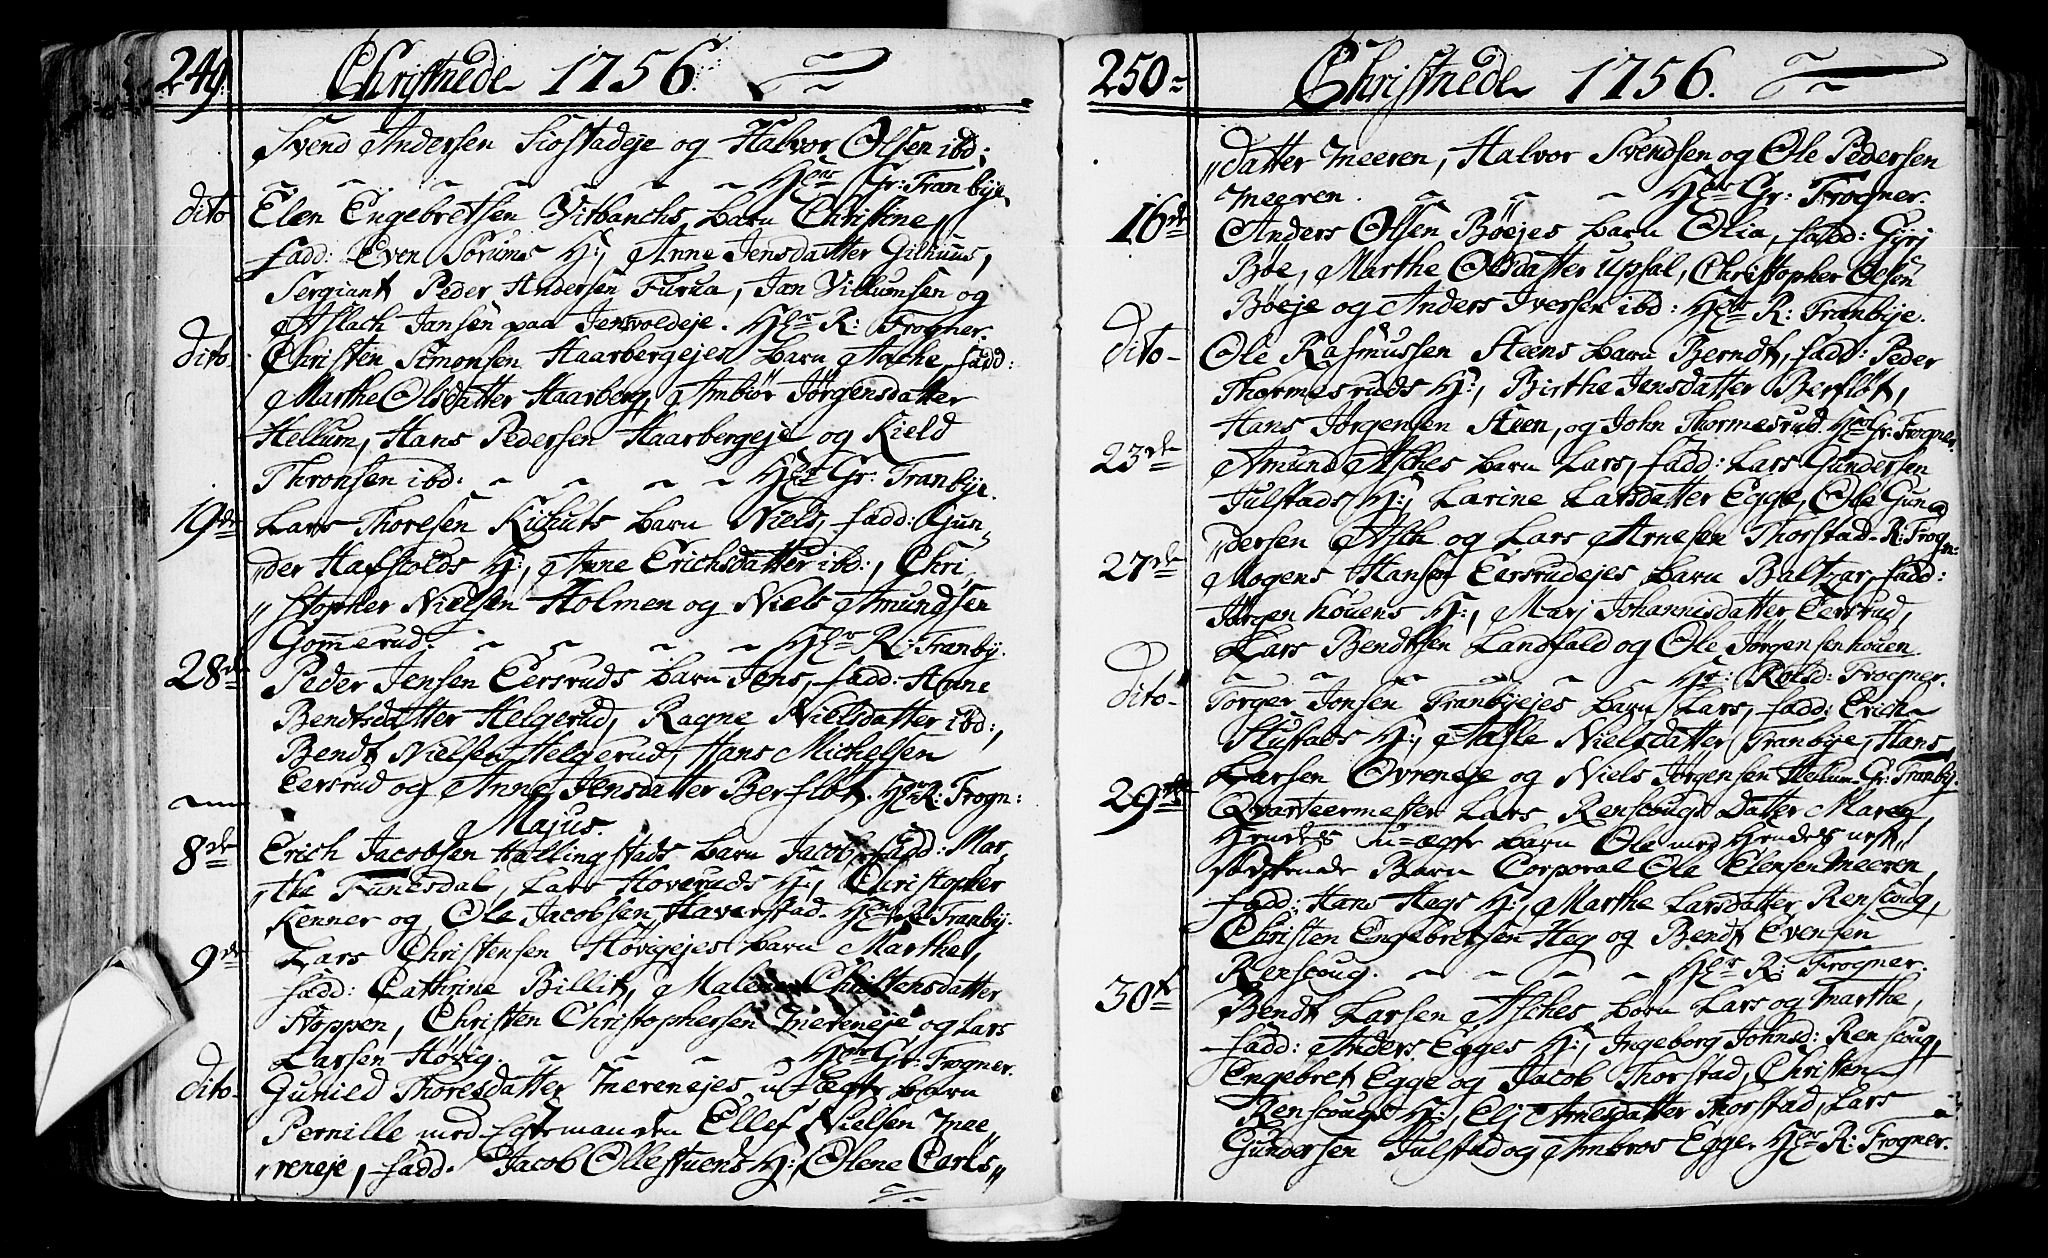 249. Christnede 1756.
Svend Andersen Siostadeje og Halvor Olsen ibd:
Hr Gr: Tranbye.
dito Elen Engebretsen Vitbanchs barn Christine,
fadd: Even Sørums H:, Anne Jensdatter Gilhuus,
Sergiant Peder Andersen Furua, Jan Villumsen og
Aslach Jansen paa Jensvoldeje. Hr R: Frogner.
dito Christen Simonsen Haarbergejes barn Aache, fadd:
Marthe Olsdatter Haarberg, Ambiør Jørgensdatter
Hellum, Hans Pedersen Haarbergeje og Kield
Thronsen ibd: Hr Gr: Tranbye.
19de Lars Thoresen Kihuts barn Niels, fadd: Gun„
„der Hafsolds H:, Anne Erichsdatter ibd:, Chri„
„stopher Nielsen Holmen og Niels Amundsen
Gommerud. Hr R: Tranby.
28de Peder Jensen Eersruds barn Jens, fadd: Anne
Bendtsdatter Helgerud, Ragne Nielsdatter ibd:,
Bendt Nielsen Helgerud, Hans Michelsen
Eersrud og Anne Jensdatter Berfløt. Hr R: Frogn:
Majus.
8de Erich Jacobsen Hallingstads barn Jacob, fadd: Mar„
„the Funesdal, Lars Hoveruds H:, Christopher
Kenner og Ole Jacobsen Haverstad. Hr R: Tranby.
9de Lars Christensen Høvigejes barn Marthe,
fadd: Cathrine Billit, Malene Christensdatter
Stoppen, Christen Christophersen Merreneje og Lars
Larsen Høvig. Hr Gr: Frogner.
dito Gunild Thoresdatter Merenejes u-ægte barn
Pernille med Egtemanden Ellef Nielsen Mee„
„reneje, fadd: Jacob Ollestuens H:, Olene Carls„
250 Christnede 1756.
„datter Meeren, Halvor Svendsen og Ole Pedersen
Meeren. Hr Gr: Frogner.
16de Anders Olsen Bøejes barn Olia, fadd: Gurj
Bøe, Marthe Olsdatter Upsal, Christopher Olsen
Bøeje og Anders Iversen ibd: Hr R: Tranbye.
dito Ole Rasmussen Steens barn Berndt, fadd: Peder
Thormesruds H:, Birthe Jensdatter Berfløt,
Hans Jørgensen Steen, og John Thormesrud. Hr Gr: Frogner.
23de Amund Asches barn Lars, fadd: Lars Gundersen
Julstads H:, Larine Larsdatter Egge, Ole Gun„
„dersen Asch og Lars Arnesen Thorstad. R: Frogn:
27de Mogens Hansen Eersrudejes barn Baltzar, fadd:
Jørgen houens H:, Marj Johannisdatter Eersrud,
Lars Bendtsen Landfald og Ole Jørgensen houen.
Hr: Rolsd: Frogner.
dito Torger Jonsen Tranbyejes barn Lars, fadd: Erich
Stustads H:, Aasle Nielsdatter Tranbye, Hans
Larsen Ovreneje og Niels Jørgensen Hellum Gr: Tranby.
29de Qvarteermester Lars Renscougs Datter Maren,
Hendes u-ægte barn Ole med Hendes nest„
sødskende Barn Corporal Ole Elensen Meeren,
fadd: Hans Hags H:, Marthe Larsdatter Renscoug,
Christen Engebretsen Heg og Bendt Evensen
Renscoug. Hr R: Frogner.
30te Bendt Larsen Asches børn Lars og Marthe,
fadd: Anders Egges H:, Ingeborg Johnsd: Renscoug,
Engebret Egge og Jacob Thorstad, Christen
Renscougs H:, Elj Arnesdatter Thorstad, Lars
Gundersen Julstad og Ambros Egge. Hr R: Frogner.